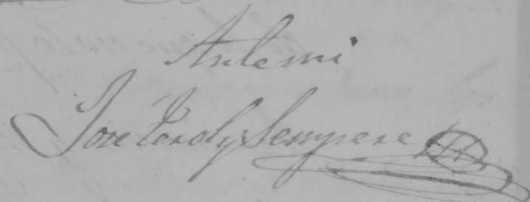 Ante mi
Jose Pardo y Sempere